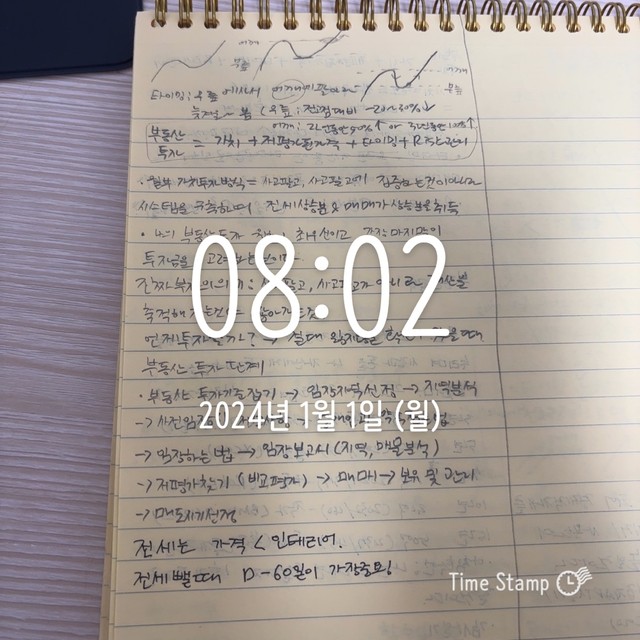 어깨
무릎
어깨
무릎
타이밍: 무릎에서 사서 어깨에 팔아라
봄 (무릎: 전고점대비 -20~30%↓
어깨: 2년동안 50%↑ or 3년동안 100%↑
부동산 투자 = 가치 + 저평가된가격 + 타이밍 + 리스크관리
· 월부 가치투자방식 = 사고팔고, 사고팔고에 집중하는것이 아니라
시스템을 구축하며 전세상승분 & 매매가상승분을 취득
· 나의 부동산투자 최우선이고 가장 마지막이
투자금을
진짜 부자의 의미: 팔고, 사고팔고가 아니라 자산을
축적해
언제 투자할까? → 절대 때
부동산 투자 단계
· 부동산 투자기준잡기 → 임장지역선정 → 지역분석
→ 사전임
→ 임장하는 법 → 임장보고서 (지역, 매물분석)
→ 저평가찾기 (비교평가) → 매매 → 보유 및 관리
→ 매도시기선정
전세는 가격 < 인테리어.
전세뺄때 D-60일이 가장중요
08:02
2024년 1월 1일 (월)
Time Stamp